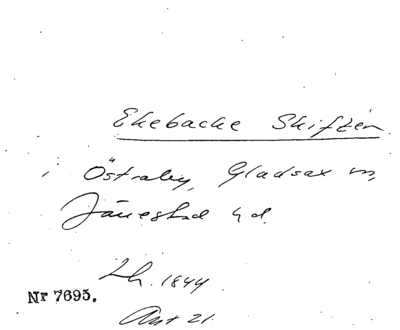 Ekebacke Skiften
i Östraby, Gladsax sn,
Järrestad hd.
Lh. 1844
Nr 7695.
Ant 21.